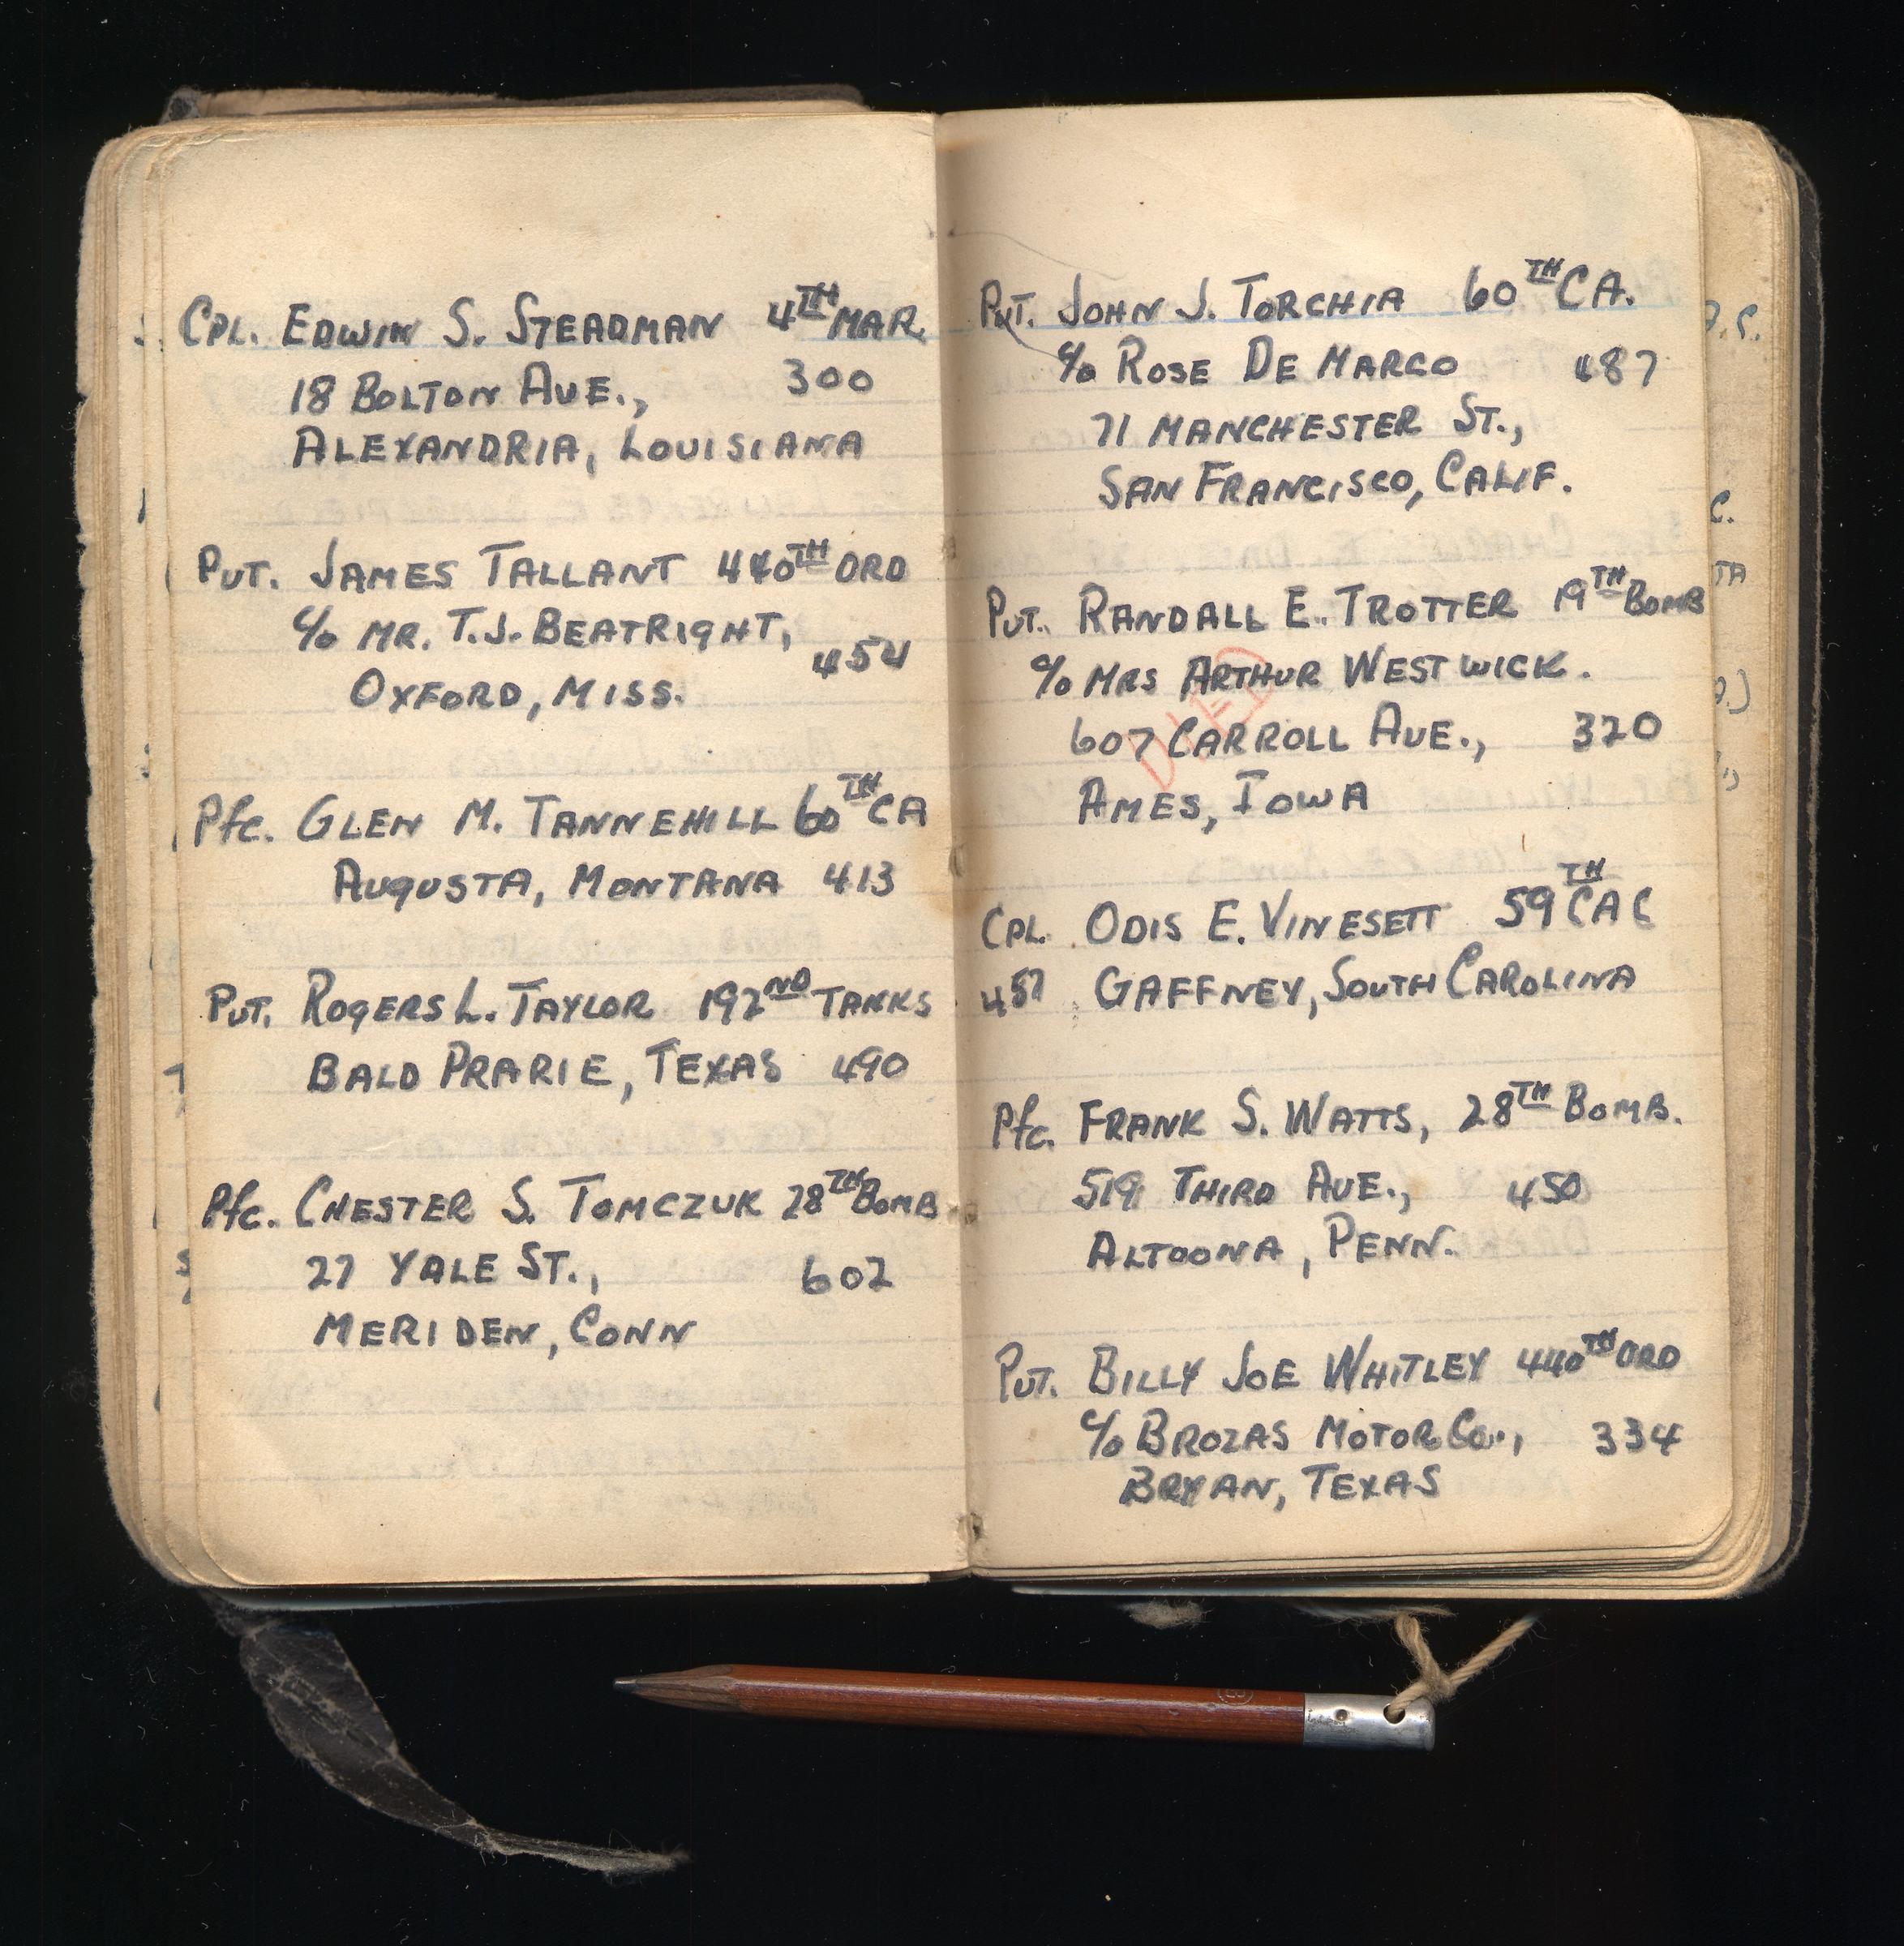 CPL. EDWIN S. STEADMAN 4TH MAR.
18 BOLTON AVE., 300
ALEXANDRIA, LOUISIANA
PVT. JAMES TALLANT 440TH ORD
C/O MR. T.J. BEATRIGHT,
454
OXFORD, MISS.
Pfc. GLEN M. TANNEHILL 60TH CA
AUGUSTA, MONTANA 413
PVT. ROGERS L. TAYLOR 192ND TANKS
BALD PRARIE, TEXAS 490
Pfc. CHESTER S. TOMCZUK 28TH BOMB
27 YALE ST., 602
MERIDEN, CONN
PVT. JOHN J. TORCHIA 60TH CA.
C/O ROSE DE MARCO 487
71 MANCHESTER ST.,
SAN FRANCISCO, CALIF.
PVT. RANDALL E. TROTTER 19TH BOMB
C/O MRS ARTHUR WESTWICK.
DIED
607 CARROLL AVE., 320
AMES, IOWA
CPL. ODIS E. VINESETT 59TH CAC
457 GAFFNEY, SOUTH CAROLINA
Pfc. FRANK S. WATTS, 28TH BOMB.
519 THIRD AVE., 450
ALTOONA, PENN.
PVT. BILLY JOE WHITLEY 440TH ORD
C/O BROZAS MOTOR CO., 334
BRYAN, TEXAS